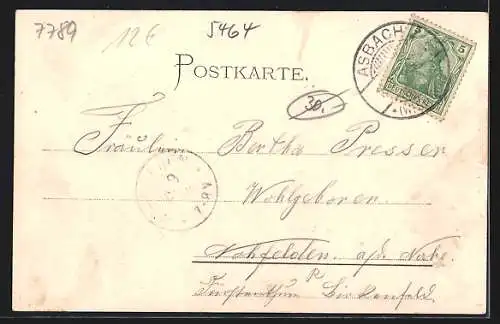 7789
12 €
5464
ASBACH
5
DEUTSCHES REICH
POSTKARTE.
30,-
Fräulein Bertha Presser
Wohlgeboren
Nohfelden a/d Nahe.
Fürstenthum Birkenfeld